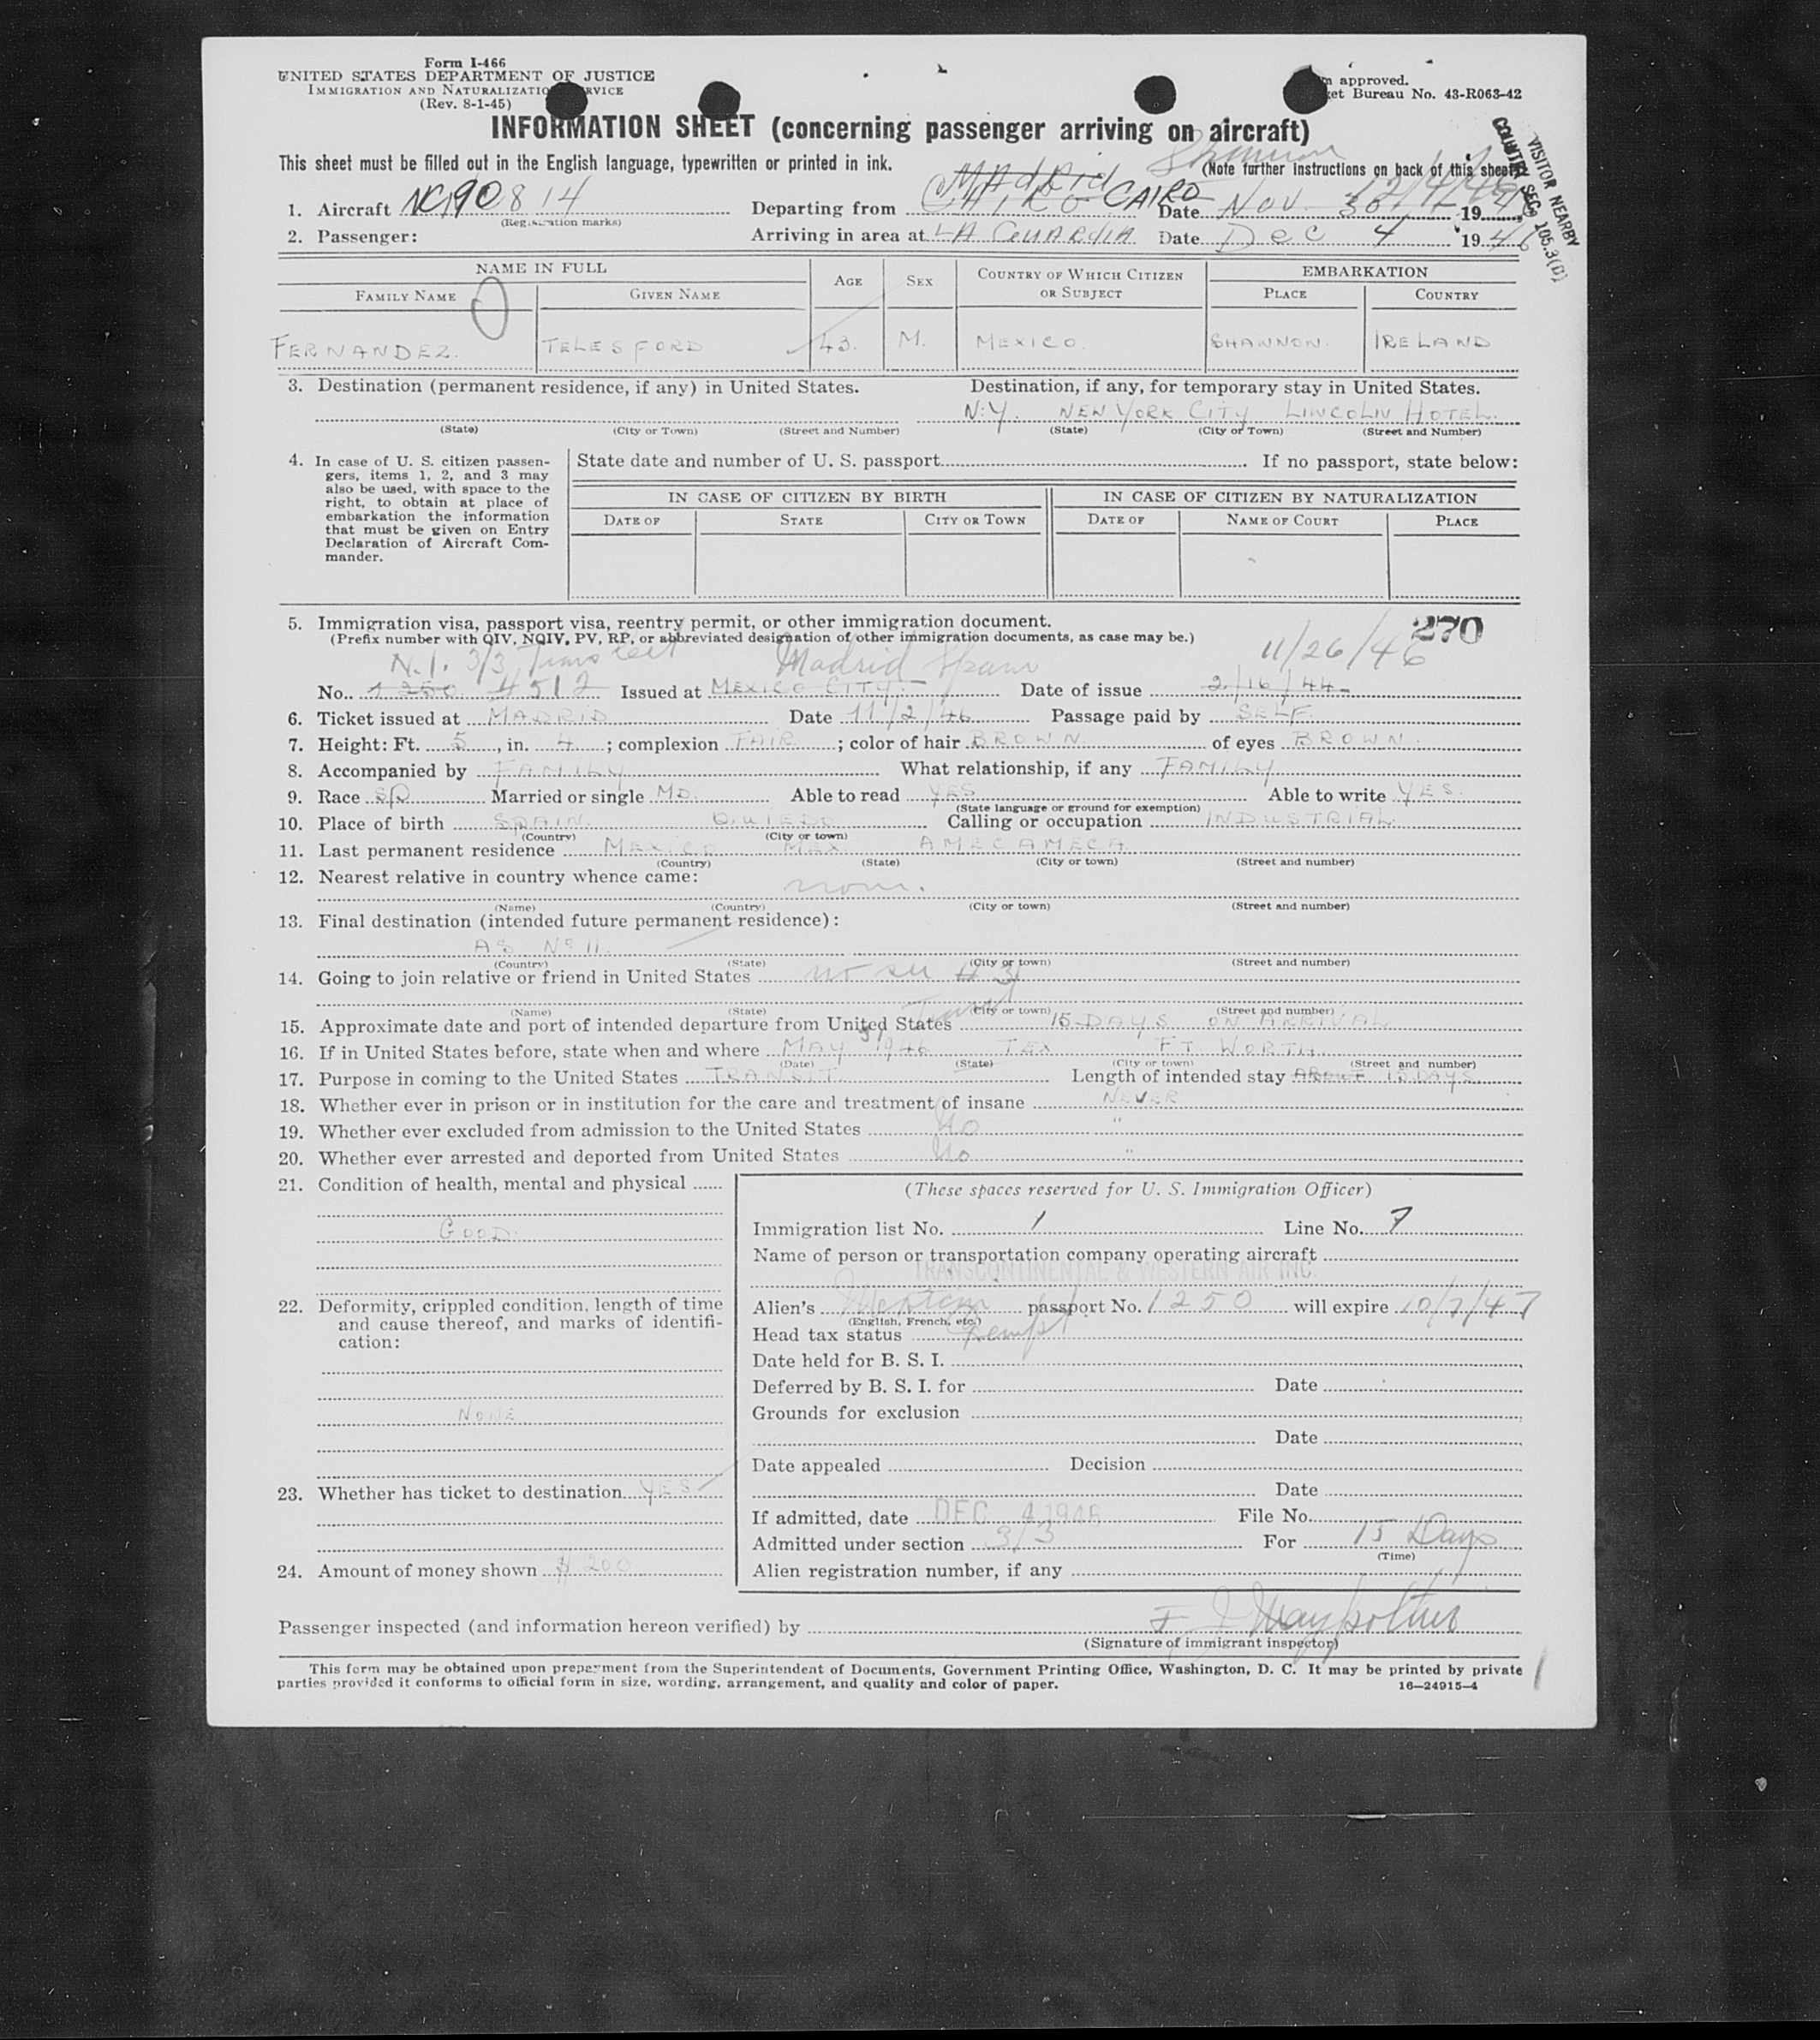 Form I-466
UNITED STATES DEPARTMENT OF JUSTICE
IMMIGRATION AND NATURALIZATION SERVICE
(Rev. 8-1-45)
approved.
Bureau No. 43-R063-42
INFORMATION SHEET (concerning passenger arriving on aircraft)
This sheet must be filled out in the English language, typewritten or printed in ink.
Shannon
(Note further instructions on back of this sheet)
VISITOR NEARBY
COUNTRY SEC. 105.3(D)
Madrid
1. Aircraft NC 90814 Departing from CAIRO CAIRO Date Nov. 30 12/4/46 19 46
(Registration marks)
2. Passenger: Arriving in area at LA GUARDIA Date Dec 4 19 46
NAME IN FULL AGE SEX COUNTRY OF WHICH CITIZEN OR SUBJECT EMBARKATION
FAMILY NAME GIVEN NAME PLACE COUNTRY
FERNANDEZ. TELESFORD 43. M. MEXICO. SHANNON. IRELAND
3. Destination (permanent residence, if any) in United States. Destination, if any, for temporary stay in United States.
N.Y. NEW YORK CITY LINCOLN HOTEL.
(State) (City or Town) (Street and Number) (State) (City or Town) (Street and Number)
4. In case of U. S. citizen passen-
gers, items 1, 2, and 3 may
also be used, with space to the
right, to obtain at place of
embarkation the information
that must be given on Entry
Declaration of Aircraft Com-
mander.
State date and number of U. S. passport If no passport, state below:
IN CASE OF CITIZEN BY BIRTH IN CASE OF CITIZEN BY NATURALIZATION
DATE OF STATE CITY OR TOWN DATE OF NAME OF COURT PLACE
5. Immigration visa, passport visa, reentry permit, or other immigration document.
(Prefix number with QIV, NQIV, PV, RP, or abbreviated designation of other immigration documents, as case may be.)
270
N.I. 3/3 Transit Madrid Spain 11/26/46
No. 1250 4512 Issued at MEXICO CITY. Date of issue 2/16/44
6. Ticket issued at MADRID Date 11/2/46 Passage paid by SELF.
7. Height: Ft. 5, in. 4; complexion FAIR; color of hair BROWN. of eyes BROWN.
8. Accompanied by FAMILY What relationship, if any FAMILY
9. Race SP Married or single MD. Able to read YES Able to write YES.
(State language or ground for exemption)
10. Place of birth SPAIN. OVIEDO Calling or occupation INDUSTRIAL
(Country) (City or town)
11. Last permanent residence MEXICO MEX. AMECAMECA
(Country) (State) (City or town) (Street and number)
12. Nearest relative in country whence came:
(Name) (Country) (City or town) (Street and number)
13. Final destination (intended future permanent residence):
AS Nº 11.
(Country) (State) (City or town) (Street and number)
14. Going to join relative or friend in United States no see # 3
(Name) (State) (City or town) (Street and number)
15. Approximate date and port of intended departure from United States 15 DAYS ON ARRIVAL
16. If in United States before, state when and where MAY 1946 TEX FT WORTH.
(Date) (State) (City or town) (Street and number)
17. Purpose in coming to the United States TRANSIT. Length of intended stay ABOUT 15 DAYS.
18. Whether ever in prison or in institution for the care and treatment of insane NEVER
19. Whether ever excluded from admission to the United States No "
20. Whether ever arrested and deported from United States No "
21. Condition of health, mental and physical
GOOD.
22. Deformity, crippled condition, length of time
and cause thereof, and marks of identifi-
cation:
NONE
23. Whether has ticket to destination YES
24. Amount of money shown $ 200
(These spaces reserved for U. S. Immigration Officer)
Immigration list No. 1 Line No. 7
Name of person or transportation company operating aircraft
TRANSCONTINENTAL & WESTERN AIR INC
Alien's Mexican passport No. 1250 will expire 10/7/47
(English, French, etc.)
Head tax status Exempt
Date held for B. S. I.
Deferred by B. S. I. for Date
Grounds for exclusion
Date
Date appealed Decision
Date
If admitted, date DEC 4 1946 File No.
Admitted under section 3/3 For 15 Days
(Time)
Alien registration number, if any
Passenger inspected (and information hereon verified) by
(Signature of immigrant inspector)
This form may be obtained upon prepayment from the Superintendent of Documents, Government Printing Office, Washington, D. C. It may be printed by private
parties provided it conforms to official form in size, wording, arrangement, and quality and color of paper.
16—24915-4